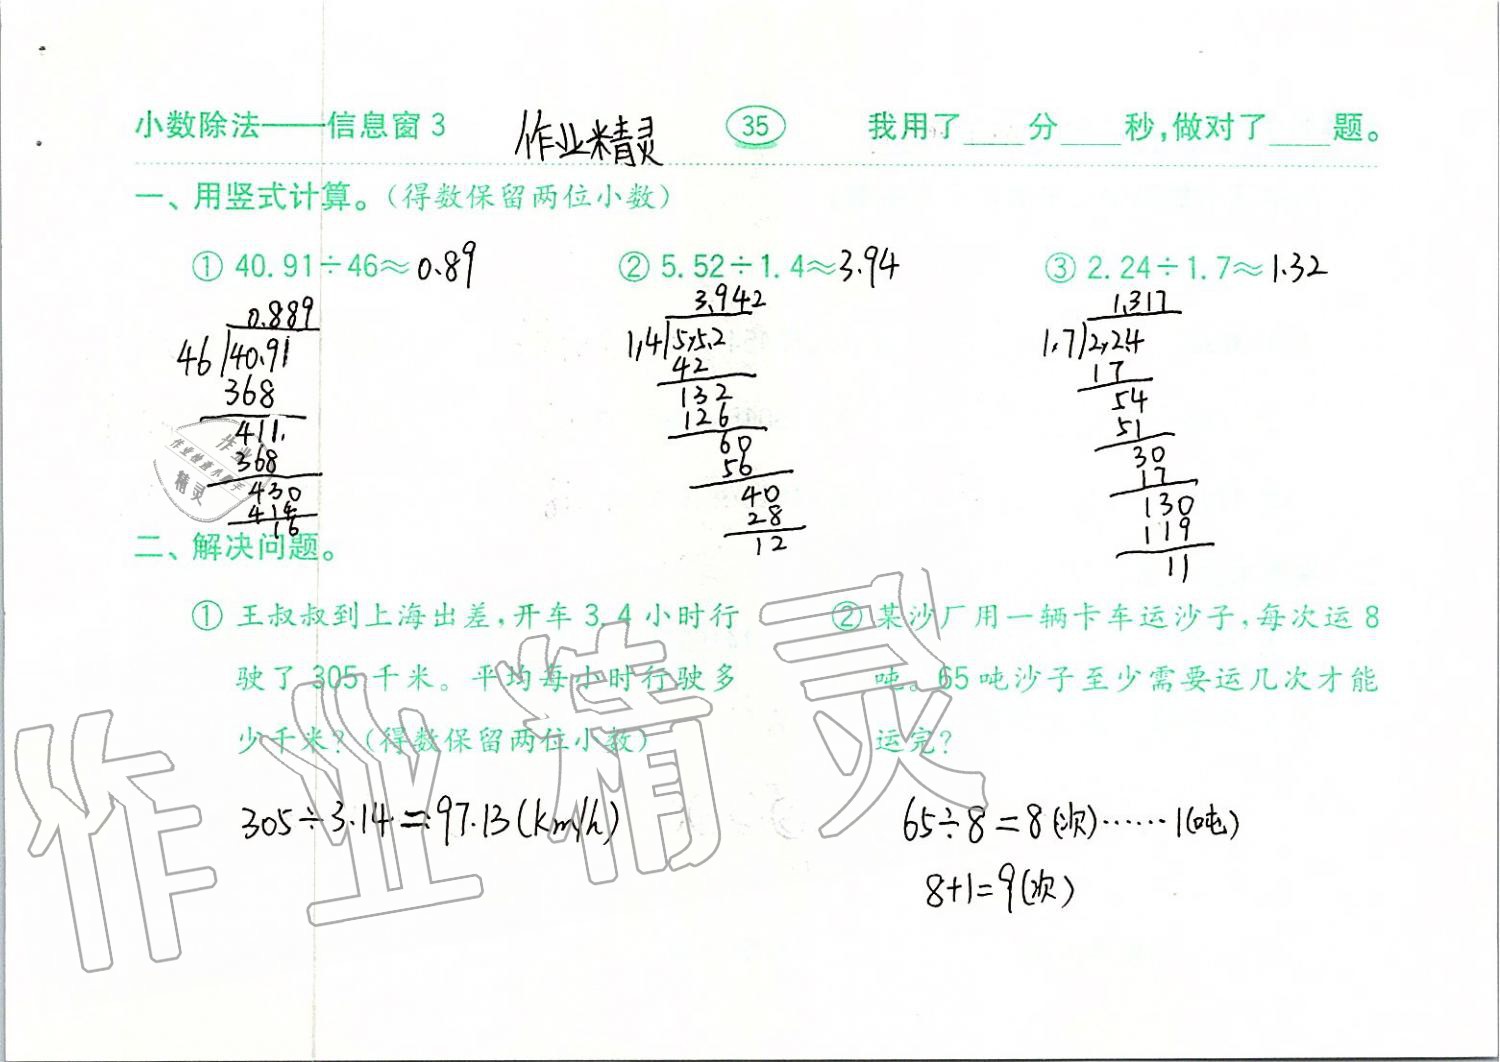 小数除法——信息窗3 作业精灵 35 我用了____分____秒,做对了____题。
一、用竖式计算。(得数保留两位小数)
① 40.91÷46≈0.89 ② 5.52÷1.4≈3.94 ③ 2.24÷1.7≈1.32
0.889 3.942 1.317
46 40.91 1,4 5,5.2 1,7 2,2.4
368 42 17
411. 132 54
368 126 51
430 60 30
414 56 17
16 40 130
28 119
12 11
作业
作业检查小助手
精灵
二、解决问题。
① 王叔叔到上海出差,开车 3.4 小时行
驶了 305 千米。平均每小时行驶多
少千米?(得数保留两位小数)
305÷3.14≈97.13(km/h)
② 某沙厂用一辆卡车运沙子,每次运 8
吨。65 吨沙子至少需要运几次才能
运完?
65÷8=8(次)……1(吨)
8+1=9(次)
作业精灵